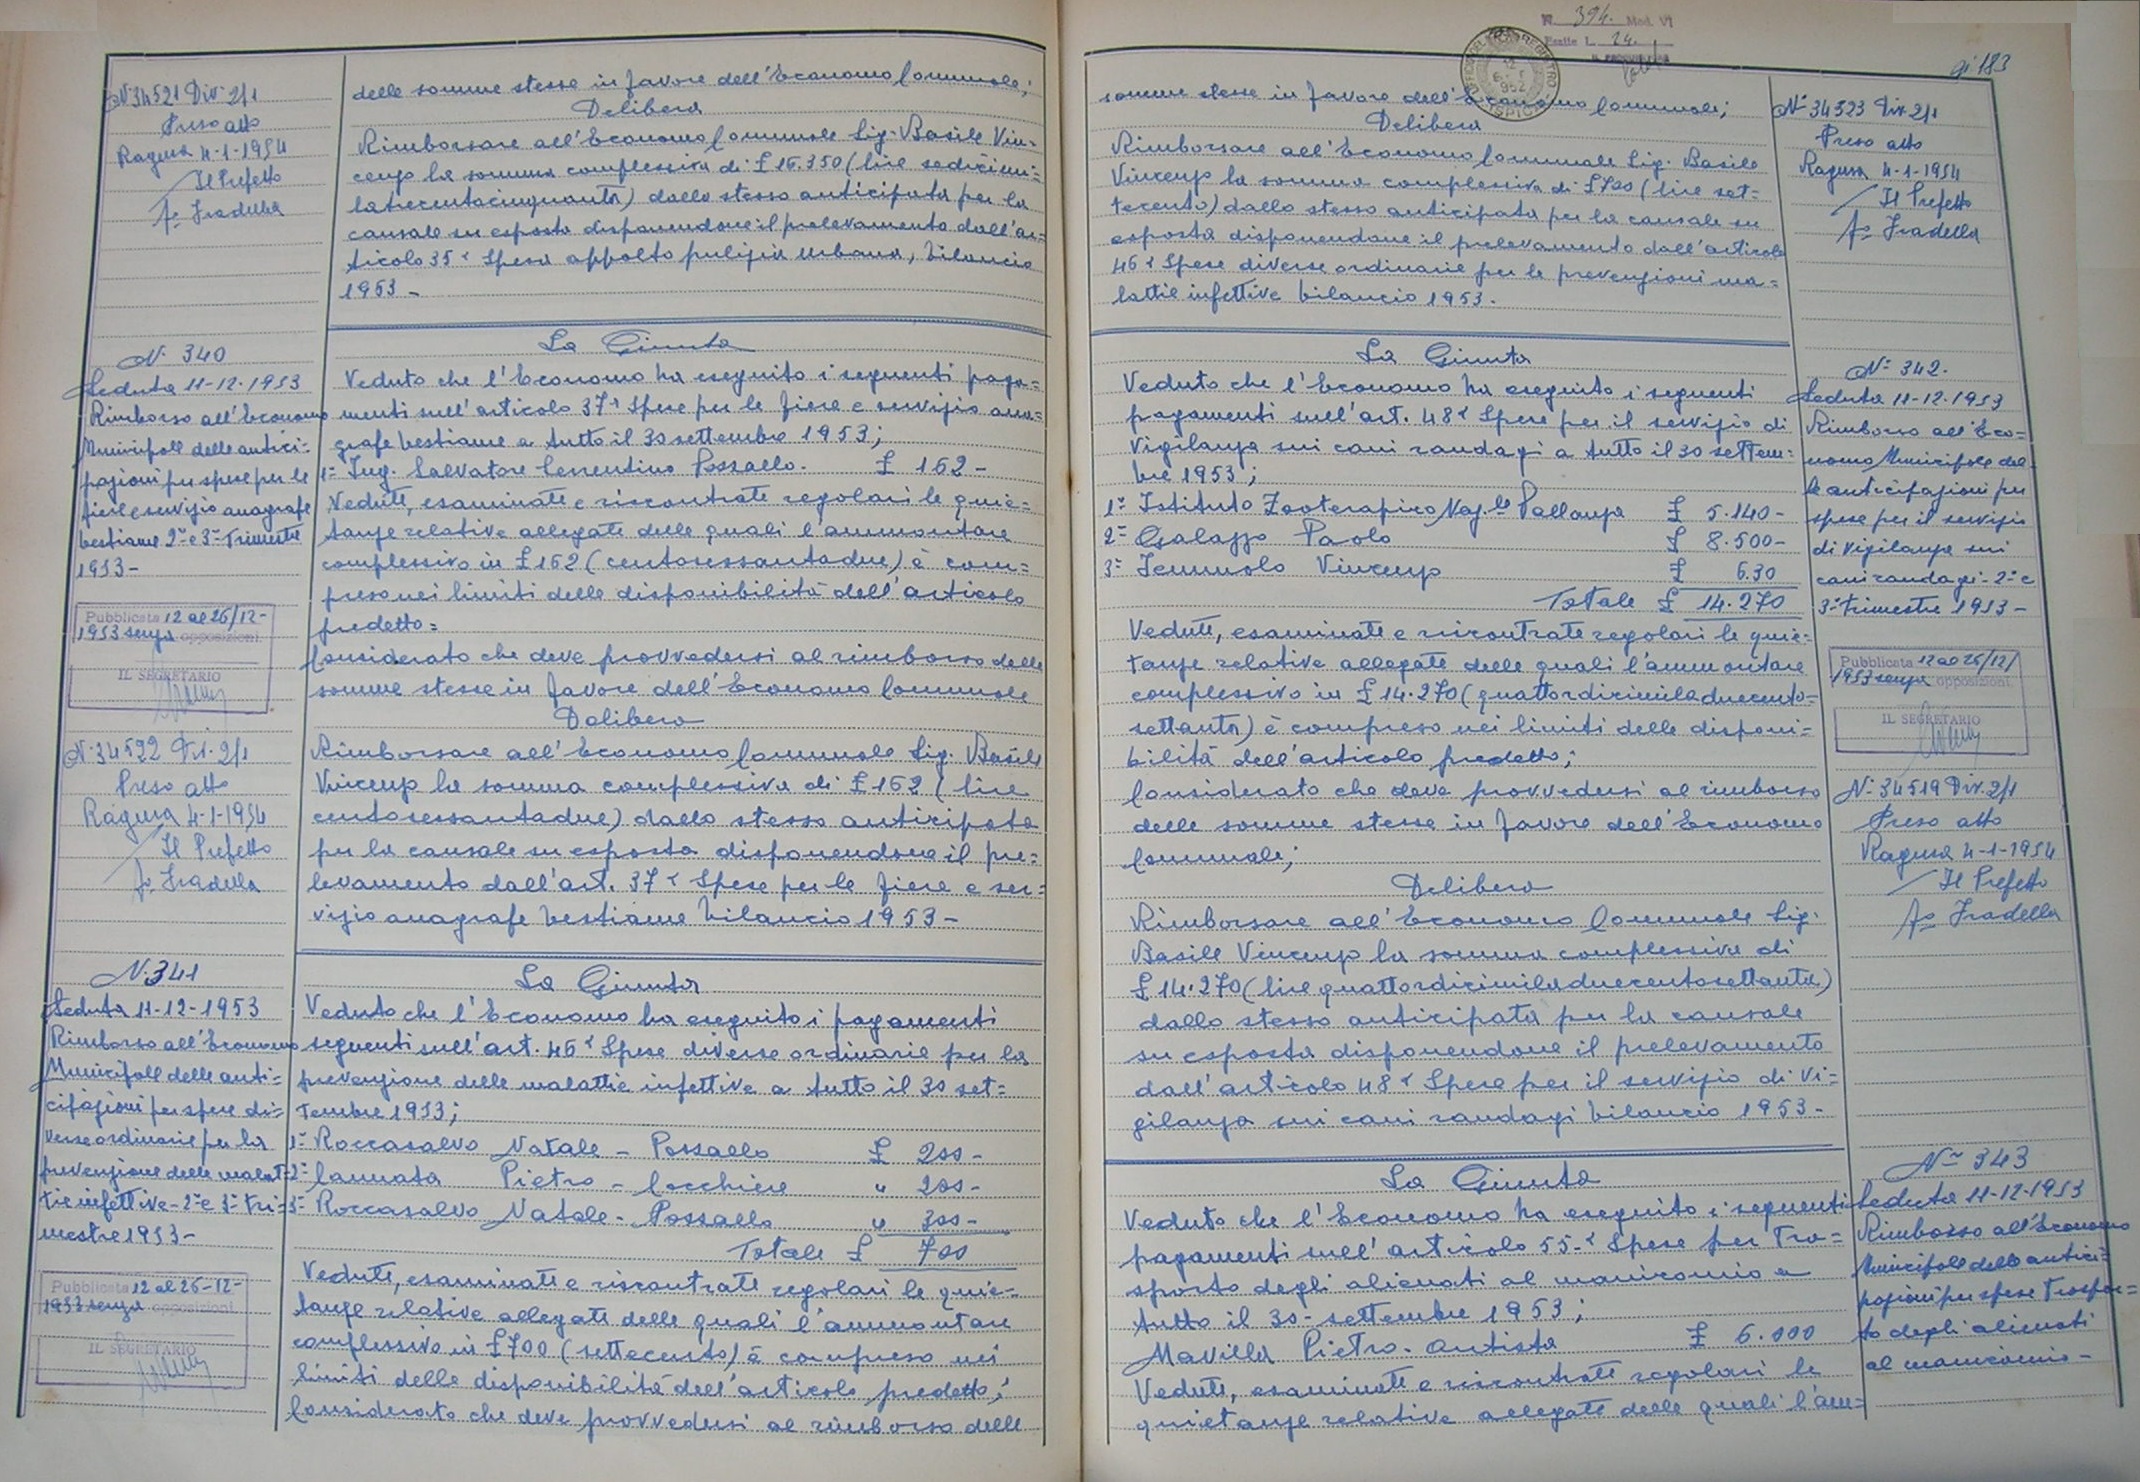 N. 34521 Div. 2/1
Preso atto
Ragusa 4-1-1954
Il Prefetto
Fo Gradella
delle somme stesse in favore dell'Economo Comunale;
Delibera
Rimborsare all'Economo Comunale Sig. Basile Vin=
cenzo la somma complessiva di £ 16.350 (lire sedicimi=
latrecentocinquanta) dallo stesso anticipata per la
causale su esposta disponendone il prelevamento dall'ar=
ticolo 35 Spesa appalto pulizia urbana, bilancio
1953-
N. 340
Seduta 11-12-1953
Rimborso all'Economo
Municipale delle antici=
pazioni per spese per le
fiere e servizio anagrafe
bestiame 2° e 3° Trimestre
1953-
Pubblicata 12 al 26/12-
1953 senza opposizioni
IL SEGRETARIO
N. 34522 Div. 2/1
Preso atto
Ragusa 4-1-1954
Il Prefetto
Fo Gradella
La Giunta
Veduto che l'Economo ha eseguito i seguenti paga=
menti sull'articolo 37 Spese per le fiere e servizio ana=
grafe bestiame a tutto il 30 settembre 1953;
1° Ing. Salvatore Sorrentino Pozzallo. £ 162-
Vedute, esaminate e riscontrate regolari le quie=
tanze relative allegate delle quali l'ammontare
complessivo in £ 162 (centosessantadue) è com=
preso nei limiti delle disponibilità dell'articolo
predetto=
Considerato che deve provvedersi al rimborso delle
somme stesse in favore dell'Economo Comunale
Delibera
Rimborsare all'Economo Comunale Sig. Basile
Vincenzo la somma complessiva di £ 162 (lire
centosessantadue) dallo stesso anticipata
per la causale su esposta disponendone il pre=
levamento dall'art. 37 Spese per le fiere e ser=
vizio anagrafe bestiame bilancio 1953-
N. 341
Seduta 11-12-1953
Rimborso all'Economo
Municipale delle anti=
cipazioni per spese di=
verse ordinarie per la
prevenzione delle malat=
tie infettive-2° e 3° Tri=
mestre 1953-
Pubblicata 12 al 26-12-
1953 senza opposizioni
IL SEGRETARIO
La Giunta
Veduto che l'Economo ha eseguito i pagamenti
seguenti sull'art. 46 Spese diverse ordinarie per la
prevenzione delle malattie infettive a tutto il 30 set=
tembre 1953;
1° Roccasalvo Natale - Pozzallo £ 200-
2° Cannata Pietro - Cocchiere " 200-
3° Roccasalvo Natale - Pozzallo " 300-
Totale £ 700
Vedute, esaminate e riscontrate regolari le quie=
tanze relative allegate delle quali l'ammontare
complessivo in £ 700 (settecento) è compreso nei
limiti delle disponibilità dell'articolo predetto;
Considerato che deve provvedersi al rimborso delle
N. 394. Mod. VI
Esatte L. 24.
183
UFFICIO DEL REGISTRO
ISPICA
somme stesse in favore dell'Economo Comunale;
Delibera
Rimborsare all'Economo Comunale Sig. Basile
Vincenzo la somma complessiva di £ 700 (lire set=
tecento) dallo stesso anticipata per la causale su
esposta disponendone il prelevamento dall'articolo
46 Spese diverse ordinarie per le prevenzioni ma=
lattie infettive bilancio 1953.
N° 34523 Div. 2/1
Preso atto
Ragusa 4-1-1954
Il Prefetto
Fo Gradella
La Giunta
Veduto che l'Economo ha eseguito i seguenti
pagamenti sull'art. 48 Spese per il servizio di
vigilanza sui cani randagi a tutto il 30 settem=
bre 1953;
1° Istituto Zooterapico Naz.le Pallanza £ 5.140-
2° Galazzo Paolo £ 8.500-
3° Iemmolo Vincenzo £ 630
Totale £ 14.270
Vedute, esaminate e riscontrate regolari le quie=
tanze relative allegate delle quali l'ammontare
complessivo in £ 14.270 (quattordicimiladuecento=
settanta) è compreso nei limiti delle disponi=
bilità dell'articolo predetto;
Considerato che deve provvedersi al rimborso
delle somme stesse in favore dell'Economo
Comunale;
Delibera
Rimborsare all'Economo Comunale Sig.
Basile Vincenzo la somma complessiva di
£ 14.270 (lire quattordicimiladuecentosettanta)
dallo stesso anticipata per la causale
su esposta disponendone il prelevamento
dall'articolo 48 Spese per il servizio di vi=
gilanza sui cani randagi bilancio 1953-
N° 342.
Seduta 11-12-1953
Rimborso all'Eco=
nomo Municipale del=
le anticipazioni per
spese per il servizio
di vigilanza sui
cani randagi-2° e
3° trimestre 1953-
Pubblicata 12 al 26/12/
1953 senza opposizioni
IL SEGRETARIO
N. 34519 Div. 2/1
Preso atto
Ragusa 4-1-1954
Il Prefetto
Fo Gradella
La Giunta
Veduto che l'Economo ha eseguito i seguenti
pagamenti sull'articolo 55 Spese per Tra=
sporto degli alienati al manicomio a
tutto il 30-settembre 1953;
Mavilla Pietro-Autista £ 6.000
Vedute, esaminate e riscontrate regolari le
quietanze relative allegate delle quali l'am=
N° 343
Seduta 11-12-1953
Rimborso all'Economo
Municipale delle antici=
pazioni per spese Traspor=
to degli alienati
al manicomio-